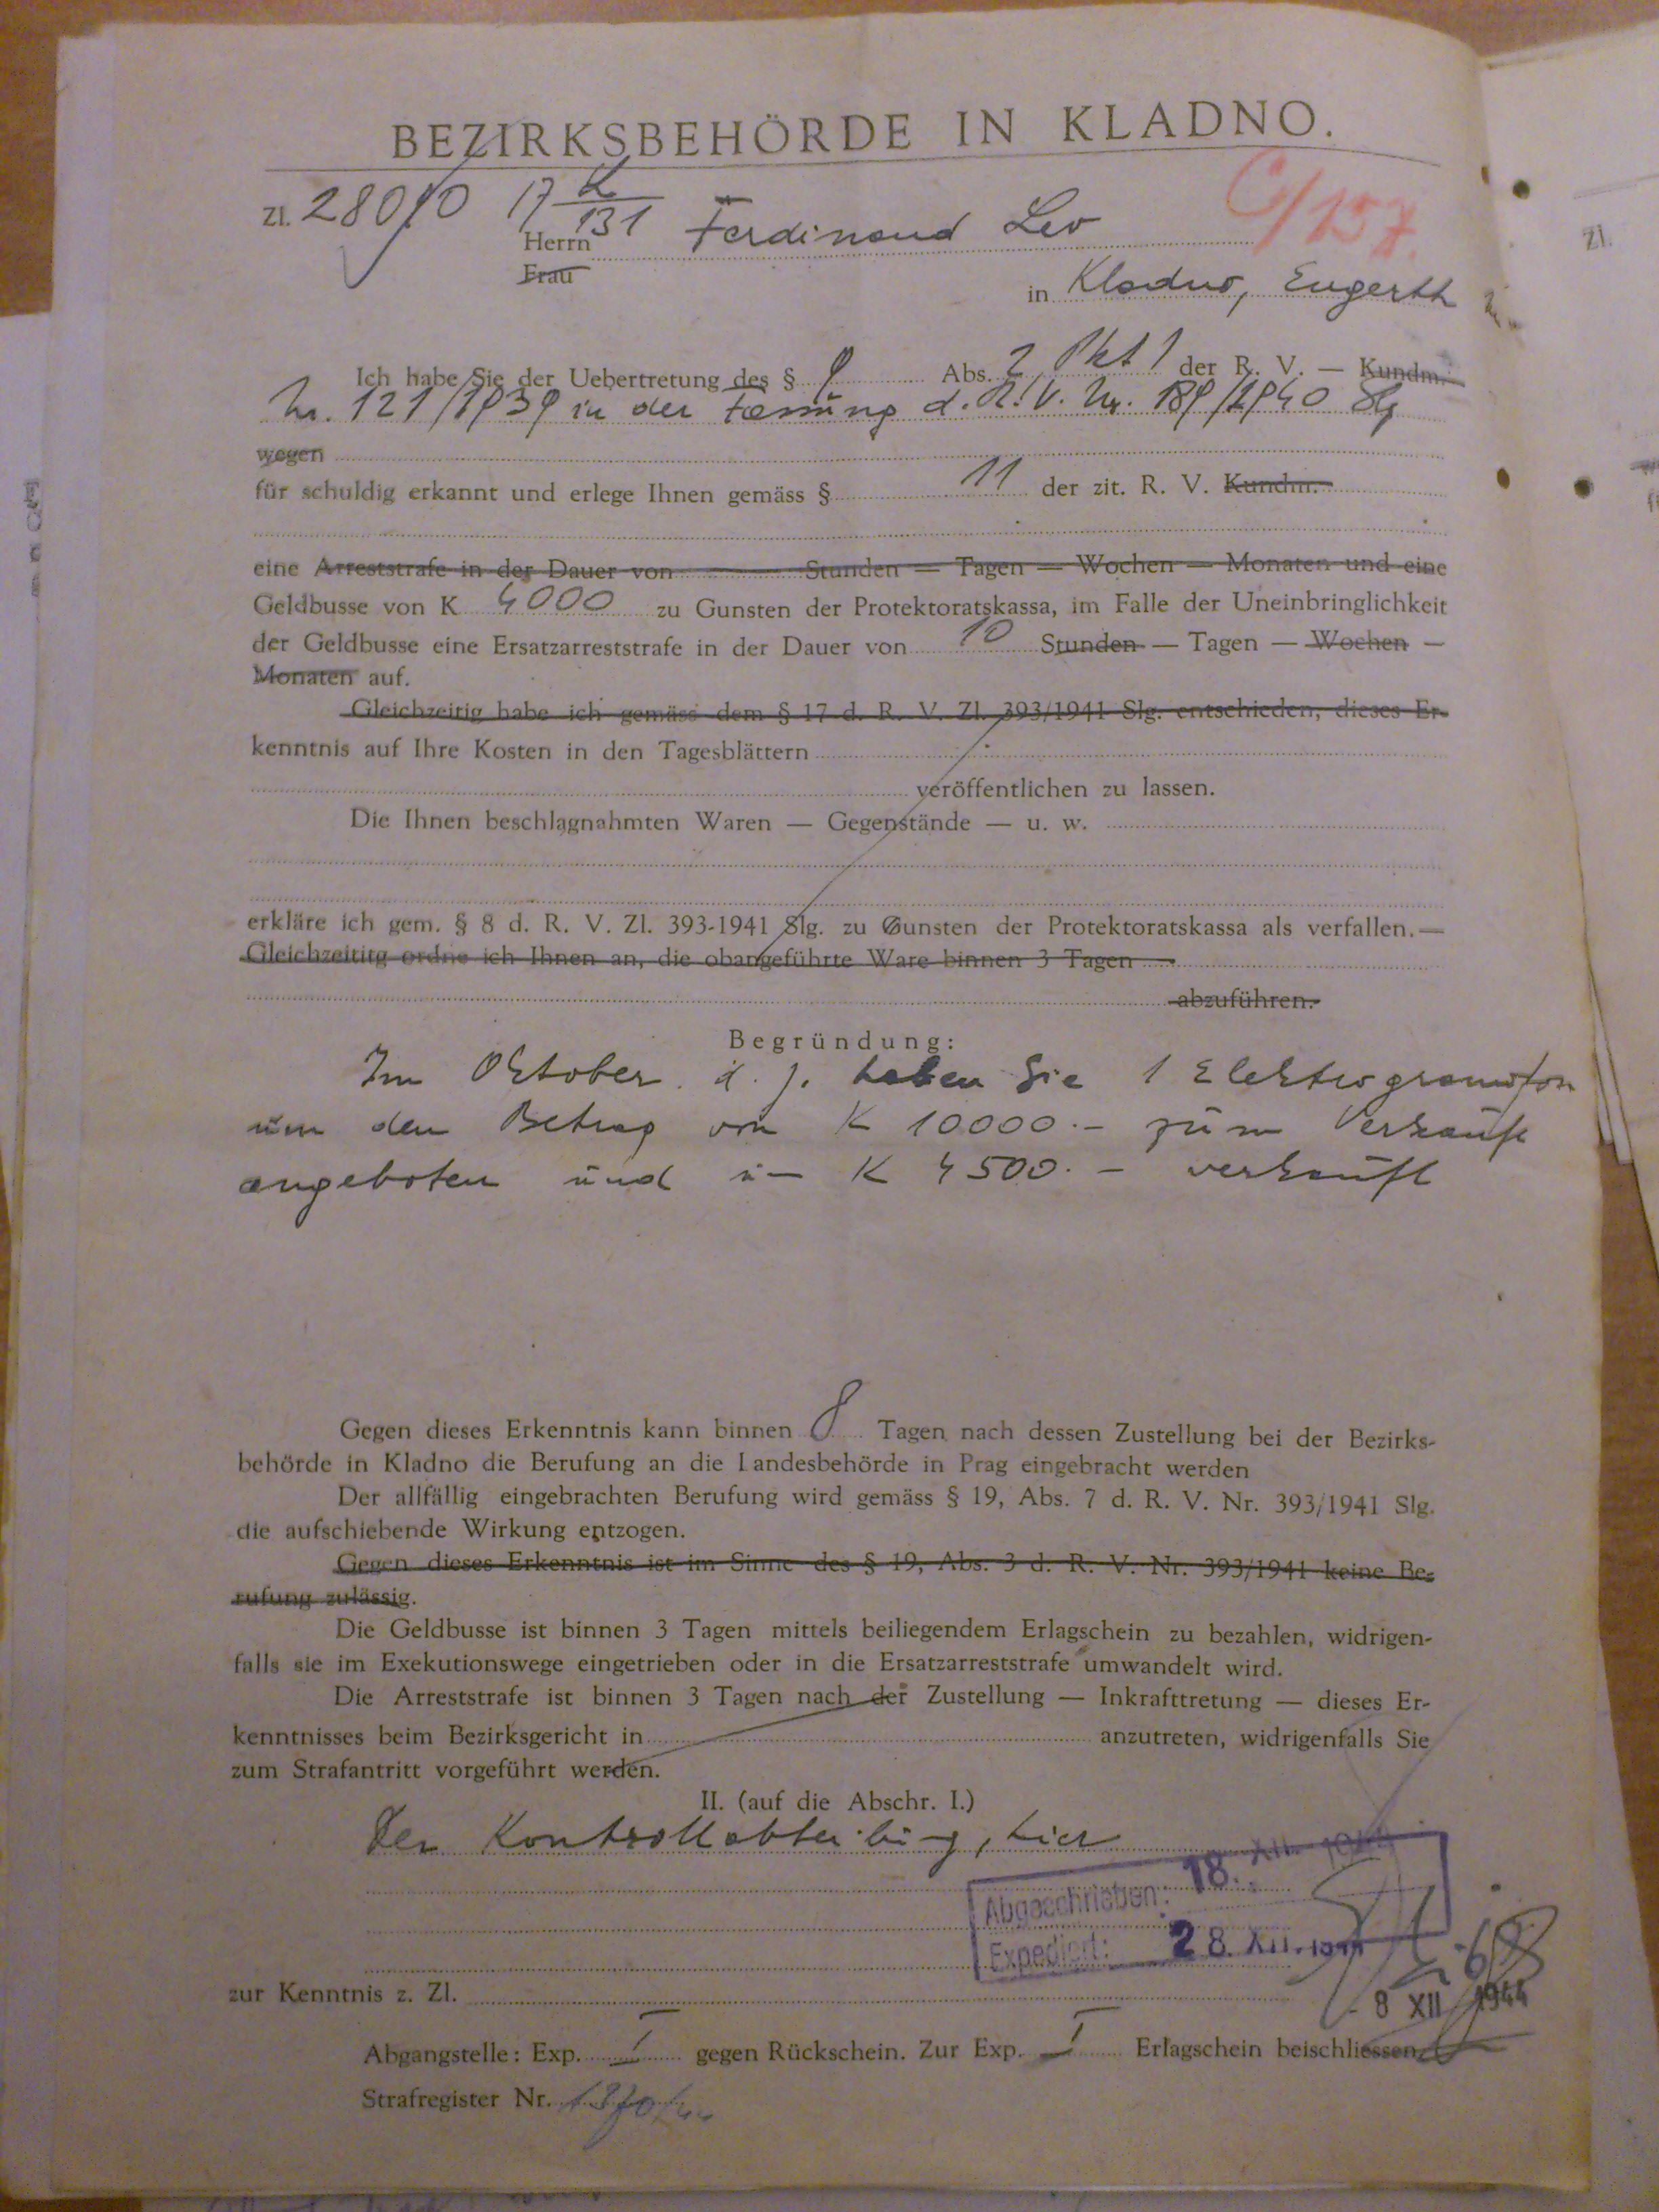 BEZIRKSBEHÖRDE IN KLADNO.
Zl. 28010 17 L/131
C/157.
Herrn Ferdinand Leo
Frau
in Kladno, Engerth
Ich habe Sie der Uebertretung des § 9 Abs. 2 Pkt 1 der R. V. — Kundm.
Nr. 121/1939 in der Fassung d. R. V. Nr. 189/1940 Slg
wegen
für schuldig erkannt und erlege Ihnen gemäss § 11 der zit. R. V. Kundm.
eine Arreststrafe in der Dauer von Stunden — Tagen — Wochen — Monaten und eine
Geldbusse von K 4000 zu Gunsten der Protektoratskassa, im Falle der Uneinbringlichkeit
der Geldbusse eine Ersatzarreststrafe in der Dauer von 10 Stunden — Tagen — Wochen —
Monaten auf.
Gleichzeitig habe ich gemäss dem § 17 d. R. V. Zl. 393/1941 Slg. entschieden, dieses Er-
kenntnis auf Ihre Kosten in den Tagesblättern
veröffentlichen zu lassen.
Die Ihnen beschlagnahmten Waren — Gegenstände — u. w.
erkläre ich gem. § 8 d. R. V. Zl. 393-1941 Slg. zu Gunsten der Protektoratskassa als verfallen.—
Gleichzeititg ordne ich Ihnen an, die obangeführte Ware binnen 3 Tagen
abzuführen.
Begründung:
Im Oktober d. J. haben Sie 1 Elektrogramofon
um den Betrag von K 10000.- zum Verkaufe
angeboten und um K 4500.- verkauft
Gegen dieses Erkenntnis kann binnen 8 Tagen nach dessen Zustellung bei der Bezirks-
behörde in Kladno die Berufung an die Landesbehörde in Prag eingebracht werden
Der allfällig eingebrachten Berufung wird gemäss § 19, Abs. 7 d. R. V. Nr. 393/1941 Slg.
die aufschiebende Wirkung entzogen.
Gegen dieses Erkenntnis ist im Sinne des § 19, Abs. 3 d. R. V. Nr. 393/1941 keine Be-
rufung zulässig.
Die Geldbusse ist binnen 3 Tagen mittels beiliegendem Erlagschein zu bezahlen, widrigen-
falls sie im Exekutionswege eingetrieben oder in die Ersatzarreststrafe umwandelt wird.
Die Arreststrafe ist binnen 3 Tagen nach der Zustellung — Inkrafttretung — dieses Er-
kenntnisses beim Bezirksgericht in anzutreten, widrigenfalls Sie
zum Strafantritt vorgeführt werden.
II. (auf die Abschr. I.)
Der Kontrollabteilung, hier
Abgeschrieben: 18. XII. 1944
Expediert: 28. XII. 1944
zur Kenntnis z. Zl.
- 8 XII 1944
Abgangstelle: Exp. I gegen Rückschein. Zur Exp. I Erlagschein beischliessen.
Strafregister Nr.
Zl.